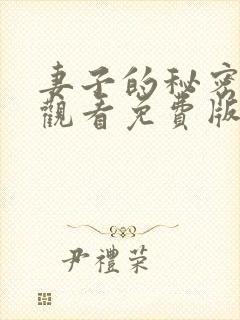 妻子的秘密
觀看免費版
尹禮荣